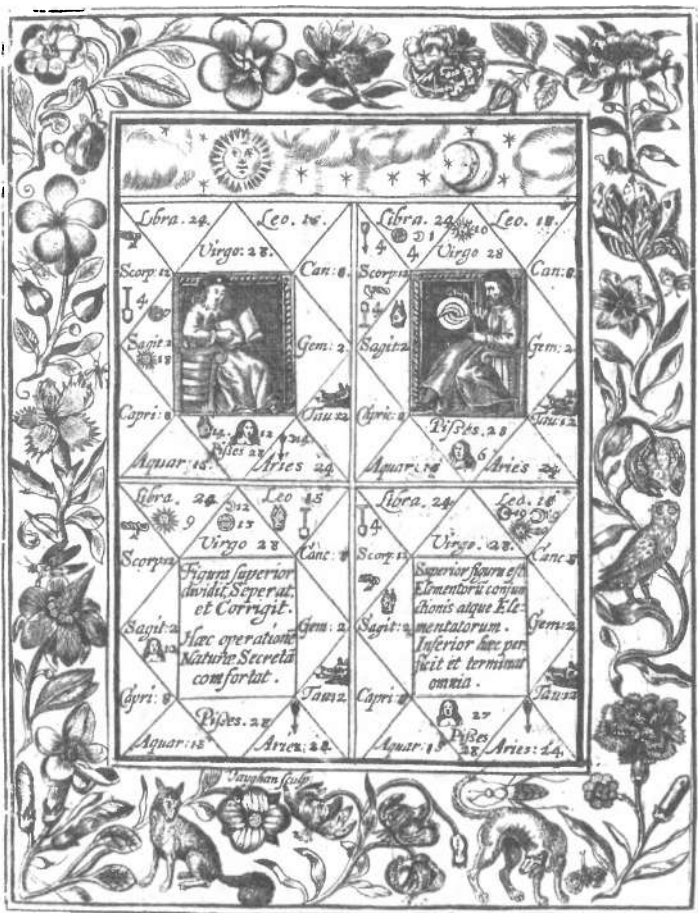 Libra. 24. Leo. 18.
Virgo. 28.
Scorp: 12 Can: 8
4
Sagit: 2 Gem: 2
18
Capri: 8 Tau: 12
14. 12
Pisses 28
Aquar: 18. Aries 24
Libra. 24. 10 Leo. 18.
4 1
4 Virgo 28
Scorp: 12 Can: 8
4
Sagit: 2 Gem: 2
Capric: 8 Tau: 12
Pisses. 28
6
Aquar: 18 Aries 24
Libra. 24 Leo 18
9 12
13
Virgo 28
Scorp: 12 Canc: 8
Figura superior
dividit, Seperat,
et Corrigit.
Hæc operationē
Naturæ Secreta
comfortat.
Sagit: 2 Gem: 2
12
Capri: 8 Tau: 12
Pisces. 28
Aquar: 18 Aries: 24
Libra. 24. Leo. 18
4 19
20
Virgo. 28.
Scorp: 12 Canc: 8
Superior figura est
Elementorū conjun
ctionis atque Ele=
mentatorum.
Inferior hæc per
ficit et terminat
omnia.
Sagit: 2 Gem: 2
Capri: 8 Tau: 12
27
Pisses
28
Aquar: 18 Aries: 24.
Vaughan sculp: